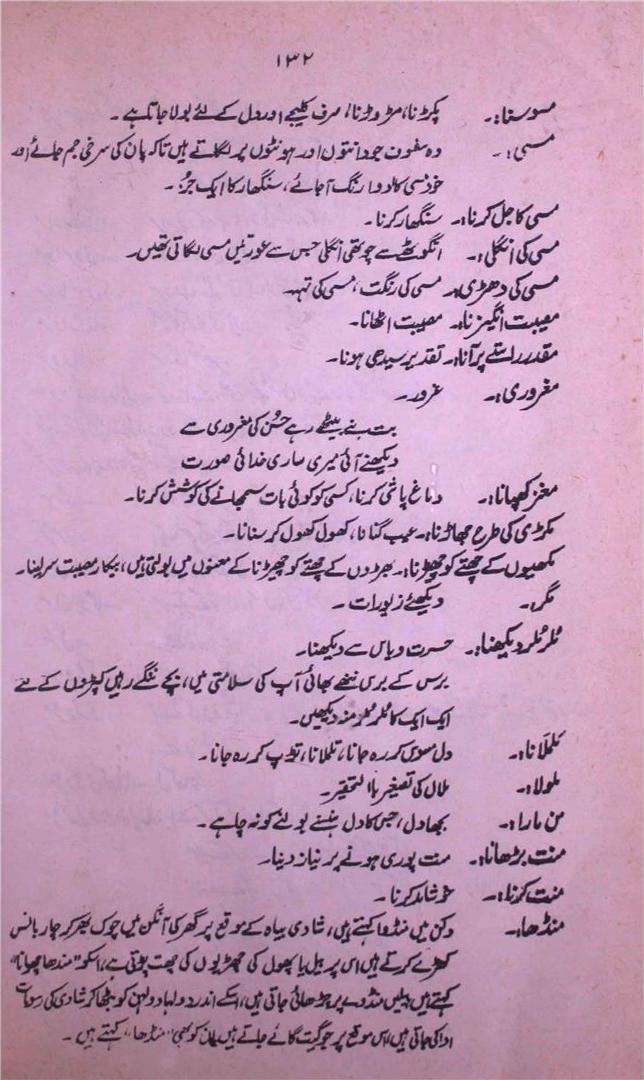 ۱۳۲
مسوسنا:۔ پکڑنا، مڑوڑنا، صرف کلیجے اور دل کے لئے بولا جاتا ہے۔
مسی:۔ وہ سفوف جو دانتوں اور ہونٹوں پر لگاتے ہیں تاکہ پان کی سرخی جم جائے اور
خود مسی کا اودا رنگ آجائے، سنگھار کا ایک جز۔
مسی کاجل کرنا:۔ سنگھار کرنا۔
مسی کی انگلی:۔ انگوٹھے سے چوتھی انگلی جس سے عورتیں مسی لگاتی تھیں۔
مسی کی دھڑی:۔ مسی کی رنگت، مسی کی تہہ۔
مصیبت انگیزنا:۔ مصیبت اٹھانا۔
مقدر راستے پر آنا:۔ تقدیر سیدھی ہونا۔
مغروری:۔ غرور۔
بت بنے بیٹھے رہے حُسن کی مغروری سے
دیکھنے آئی میری ساری خدائی صورت
مغز کھپانا:۔ دماغ پاشی کرنا، کسی کو کوئی بات سمجھانے کی کوشش کرنا۔
مکڑی کی طرح جھاڑنا:۔ عیب گنانا، کھول کھول کر سنانا۔
مکھیوں کے چھتے کو چھیڑنا:۔ بھڑوں کے چھتے کو چھیڑنا کے معنوں میں بولتی ہیں، بیکار مصیبت سر لینا۔
مگر:۔ دیکھئے زیورات۔
مُلر مُلر دیکھنا:۔ حسرت و یاس سے دیکھنا۔
برس کے برس ننھے بھائی آپ کی سلامتی میں، بچے ننگے رہیں کپڑوں کے لئے
ایک ایک کا مُلر مُلر منہ دیکھیں۔
ململانا:۔ دل مسوس کر رہ جانا، تلملانا، تڑپ کر رہ جانا۔
ملولا:۔ ملال کی تصغیر بالتحقیر۔
من مارا:۔ بجھا دل، جس کا دل ہنسنے بولنے کو نہ چاہے۔
منت بڑھانا:۔ منت پوری ہونے پر نیاز دینا۔
منت کرنا:۔ خوشامد کرنا۔
منڈھا:۔ دکن میں منڈوا کہتے ہیں، شادی بیاہ کے موقع پر گھر کی آنگن میں چوک بھر کر چار بانس
کھڑے کرتے ہیں اس پر بیل یا پھول کی چھڑیوں کی چھت ہوتی ہے، اسکو "منڈھا چھانا"
کہتے ہیں بیلیں منڈوے پر چڑھائی جاتی ہیں، اسکے اندر دولہا دولہن کو بٹھا کر شادی کی رسومات
ادا کی جاتی ہیں، اس موقع پر جو گیت گائے جاتے ہیں ان کو بھی "منڈھا" کہتے ہیں۔